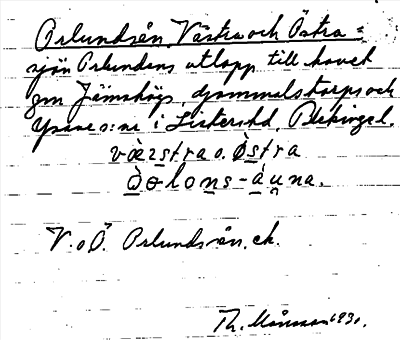 Orlundsån Västra och Östra =
sjön Orlundens utlopp till havet
gm Jämshögs, Gammalstorps och
Ysane s:nr i Listers hd, Blekinge l.
væstra o. östra
ơolons-åuna.
V. o Ö. Orlundsån, ek.
Th. Månsson 1931.